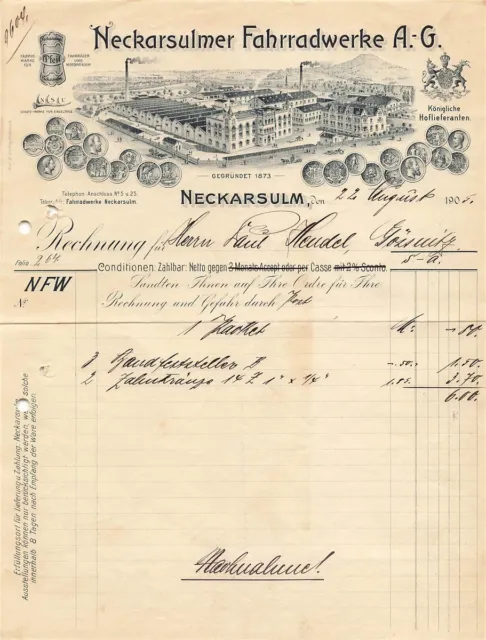 9600,
Neckarsulmer Fahrradwerke A.-G.
FABRIK MARKE FÜR
Pfeil
FAHRRÄDER UND
Königliche
Hoflieferanten.
GEGRÜNDET 1873
Telephon-Anschluss Nº 3 u. 25.
Fahrradwerke Neckarsulm.
NECKARSULM, den 22 August 1905.
Rechnung für Herrn Paul Hendel Gössnitz
S-A.
Folio 264
Conditionen: Zahlbar: Netto gegen 3 Monats-Accept oder per Casse mit 2% Sconto.
NFW
Sandten Ihnen auf Ihre Ordre für Ihre
Nº
Rechnung und Gefahr durch Post
1 Packet M. -.50.
3 Handfeststeller II -.50. 1.50
2 Zahnkränze 14 Z 1" x 3/4" 1.85. 3.70
6.00.
Nachnahme!
Erfüllungsort für Lieferung u. Zahlung: Neckarsulm.
Ausstellungen können nur berücksichtigt werden, wenn solche
innerhalb 8 Tagen nach Empfang der Ware erfolgen.